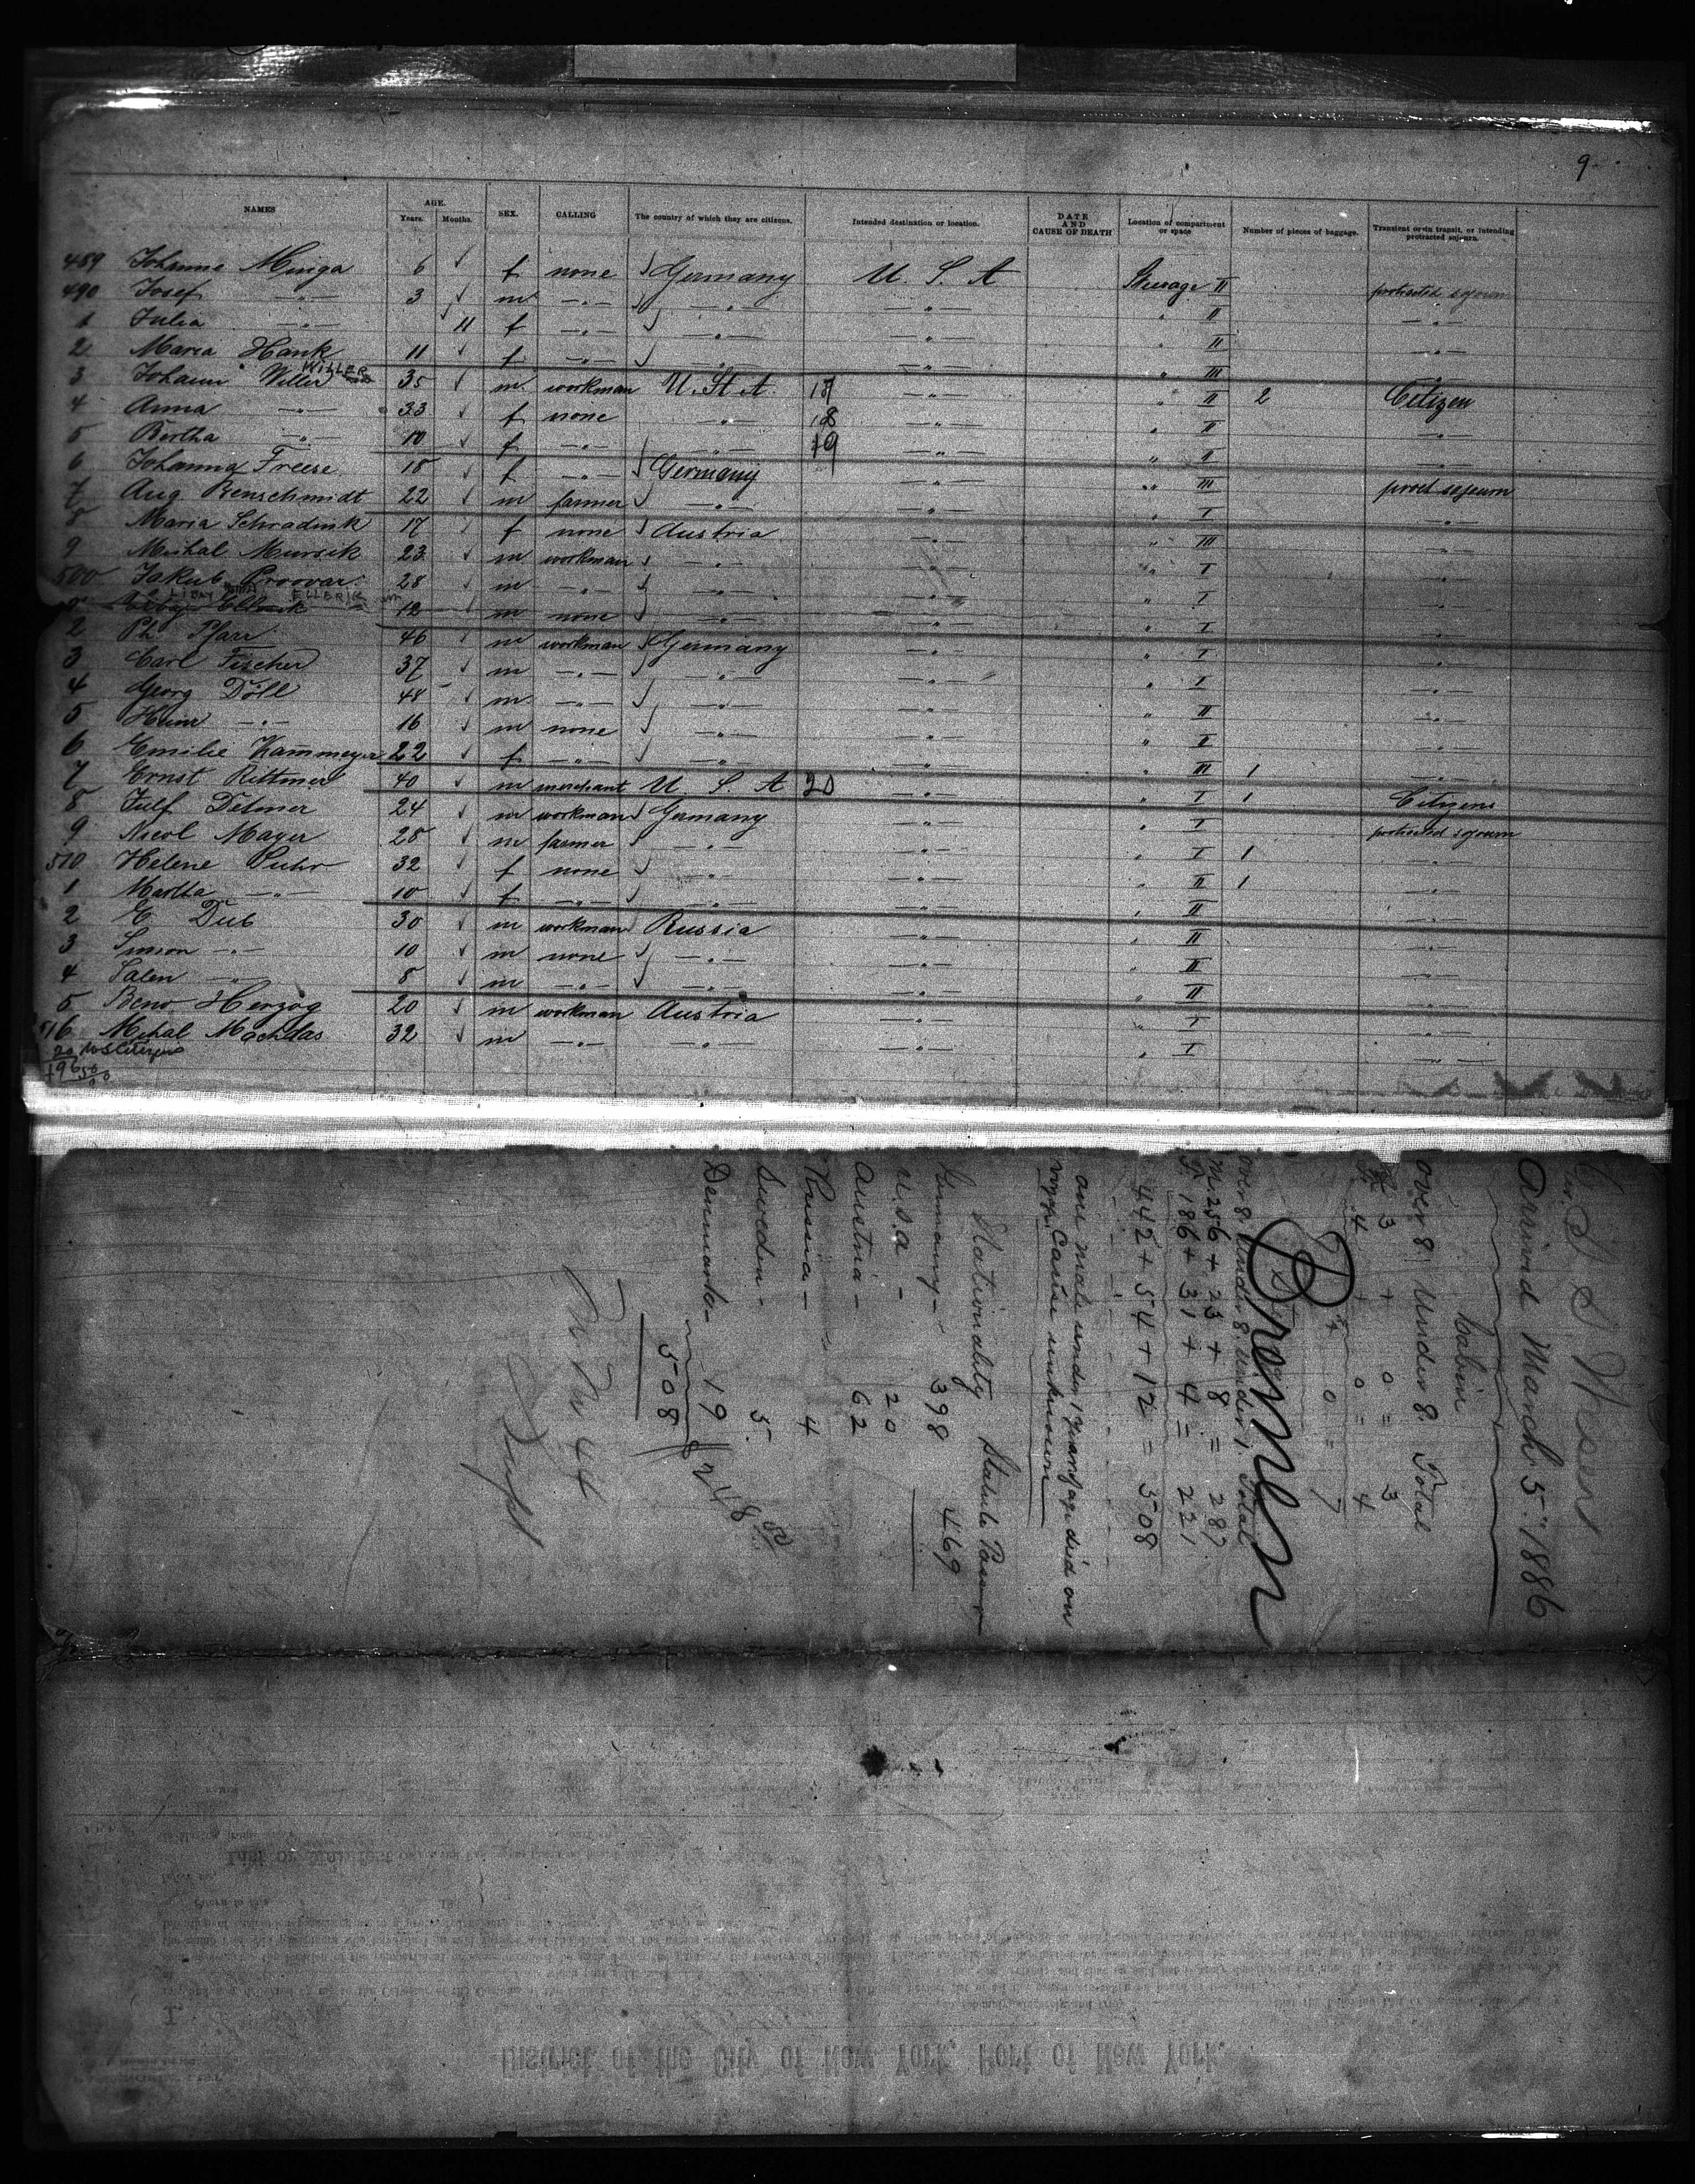 9
NAMES AGE. Years. Months. SEX. CALLING The country of which they are citizens. Intended destination or location. DATE AND CAUSE OF DEATH Location of compartment or space Number of pieces of baggage. Transient or in transit, or intending protracted sojourn.
489 Johanne Minga 6 f none Germany U. S. A Steerage II protracted sojourn
490 Josef —"— 3 m —"— —"— —"— " II —"—
1 Julia —"— 11 f —"— —"— —"— " II —"—
2 Maria Hank 11 f —"— —"— —"— " III —"—
3 Johann Willer WILLER 35 m workman U. St. A. 17 —"— " II 2 Citizen
4 Anna —"— 33 f none —"— 18 —"— " II —"—
5 Bertha —"— 10 f —"— —"— 19 —"— " II —"—
6 Johanna Freese 18 f —"— Germany —"— " III protd sojourn
7 Aug. Benschmidt 22 m farmer —"— —"— " I —"—
8 Maria Schradink 17 f none Austria —"— " III —"—
9 Michal Mursik 23 m workman —"— —"— " I —"—
500 Jakub 28 m —"— —"— —"— " I —"—
ELLERIK 12 m none —"— —"— " I —"—
2 Ph. Pfarr 46 m workman Germany —"— " I —"—
3 Carl Fischer 37 m —"— —"— —"— " I —"—
4 Georg Döll 48 m —"— —"— —"— " II —"—
5 Heinr —"— 16 m none —"— —"— " II —"—
6 Emilie Kammeyer 22 f —"— —"— —"— " III 1 —"—
7 Ernst Rittmer 40 m merchant U. S. A 20 —"— " I 1 Citizens
8 Julf Detmer 24 m workman Germany —"— " I protracted sojourn
9 Nicol Mayer 28 m farmer —"— —"— " I 1 —"—
510 Helene Suhr 32 f none —"— —"— " II 1 —"—
1 Martha —"— 10 f —"— —"— —"— " II —"—
2 E. Dub 30 m workman Russia —"— " II —"—
3 Simon —"— 10 m none —"— —"— " II —"—
4 Salen —"— 8 m —"— —"— —"— " II —"—
5 Beno Herzog 20 m workman Austria —"— " I —"—
516 Mihal Machdas 32 m —"— —"— —"— " I —"—
20 US Citizens
496
S S Weser
Arrived March 5" 1886
Cabin
over 8. Under 8. Total
M 3 + 0 = 3
F. 4 + 0 = 4
7 + 0 = 7
Bremen
over 8. Under 8. Under 1. Total
M. 256 + 23 + 8 = 287
F. 186 + 31 + 4 = 221
442 + 54 + 12 = 508
one male under 1 year of age died on
voyage. Cause unknown
Nationality Statute Passengers
Germany — 398 469
U.S.A — 20
Austria — 62
Russia — 4
Sweden — 5.
Denmark — 19
508
248 50
44
District of the City of New York, Port of New York.